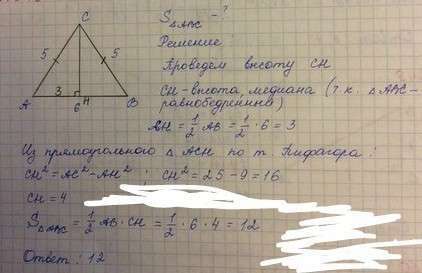 C
5 5
3
A 6 H B
S△ABC - ?
Решение:
Проведём высоту CH
CH - высота, медиана (т.к. △ABC -
равнобедренный)
AH = 1/2 AB = 1/2 · 6 = 3
Из прямоугольного △ ACH по т. Пифагора:
CH² = AC² - AH² ; CH² = 25 - 9 = 16
CH = 4
S△ABC = 1/2 AB · CH = 1/2 · 6 · 4 = 12
Ответ: 12